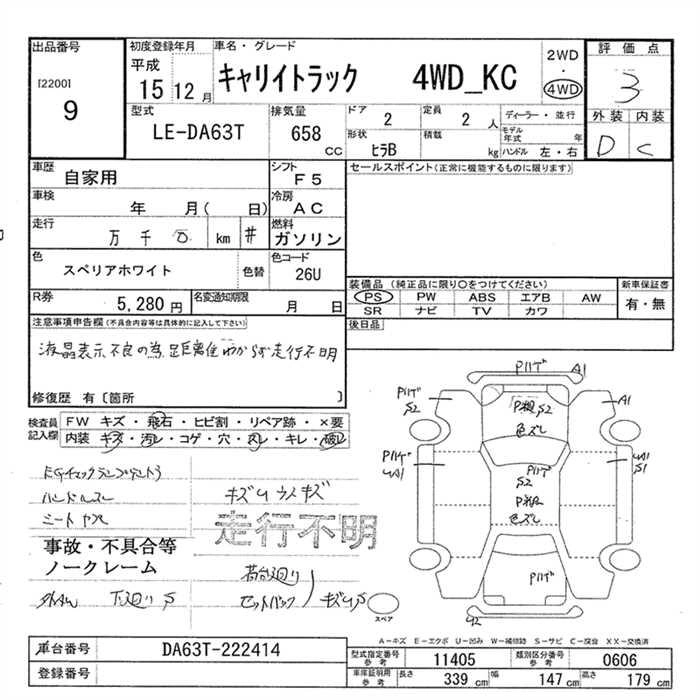 出品番号
[2200]
9
初度登録年月
平成
15 12 月
車名・グレード
キャリイトラック 4WD_KC
2WD
・
4WD
評価点
3
外装 内装
D C
型式
LE-DA63T
排気量
658
CC
ドア
2
定員
2 人
形状
ヒラB
積載
kg
ディーラー・並行
モデル年式 年
ハンドル 左・右
車歴
自家用
シフト
F5
セールスポイント(正常に機能するものに限ります)
車検
年 月( 日)
冷房
AC
走行
万 千 百 km #
燃料
ガソリン
色
スペリアホワイト
色替
色コード
26U
装備品 (純正品に限り○をつけてください)
PS PW ABS エアB AW
SR ナビ TV カワ
新車保証書
有・無
R券
5,280 円
名変通知期限
月 日
後日品
注意事項申告欄(不具合内容等は具体的に記入して下さい)
液晶表示不良の為、距離等わからず走行不明
修復歴 有〔箇所 〕
検査員
記入欄
FW キズ・飛石・ヒビ割・リペア跡・×要
内装 キズ・汚レ・コゲ・穴・スレ・キレ・破レ
ハンドルスレ
シートヤケ
キズU
走行不明
事故・不具合等
ノークレーム
荷台廻り
下廻りS
セットバック
キズUS
Pハゲ A1
Pハゲ
S2
P粗 S2
色ズレ
A1
Pハゲ
UA1
Pハゲ
S2
P粗
色ズレ
UA1
S1
Pハゲ
U2
スペア
A-キズ E-エクボ U-凹み W-補修跡 S-サビ C-腐食 XX-交換済
車台番号
DA63T-222414
登録番号
型式指定番号
参考
11405
類別区分番号
参考
0606
車庫証明用
参考
長さ
339 cm
幅
147 cm
高さ
179 cm